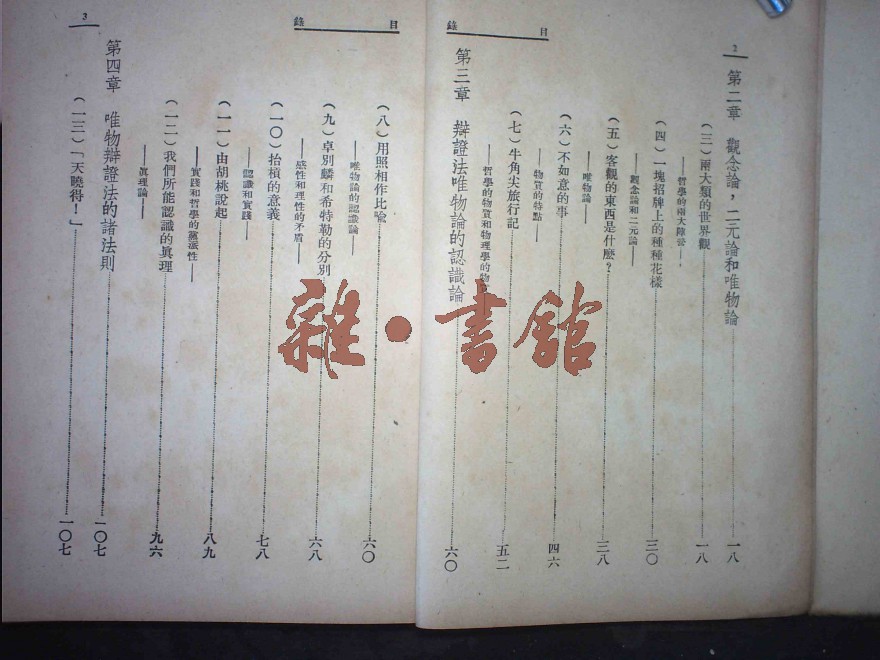 目錄
2
第二章 觀念論，二元論和唯物論 一八
（三）兩大類的世界觀 一八
——哲學的兩大陣營——
（四）一塊招牌上的種種花樣 三〇
——觀念論和二元論——
（五）客觀的東西是什麼？ 三八
——唯物論——
（六）不如意的事 四六
——物質的特點——
（七）牛角尖旅行記 五二
——哲學的物質和物理學的物
第三章 辯證法唯物論的認識論 六〇
目錄
3
（八）用照相作比喻 六〇
——唯物論的認識論——
（九）卓別麟和希特勒的分別 六八
——感性和理性的矛盾——
（一〇）抬槓的意義 七八
——認識和實踐——
（一一）由胡桃說起 八九
——實踐和哲學的黨派性——
（一二）我們所能認識的眞理 九六
——眞理論——
第四章 唯物辯證法的諸法則 一〇七
（一三）「天曉得！」 一〇七
雜·書館